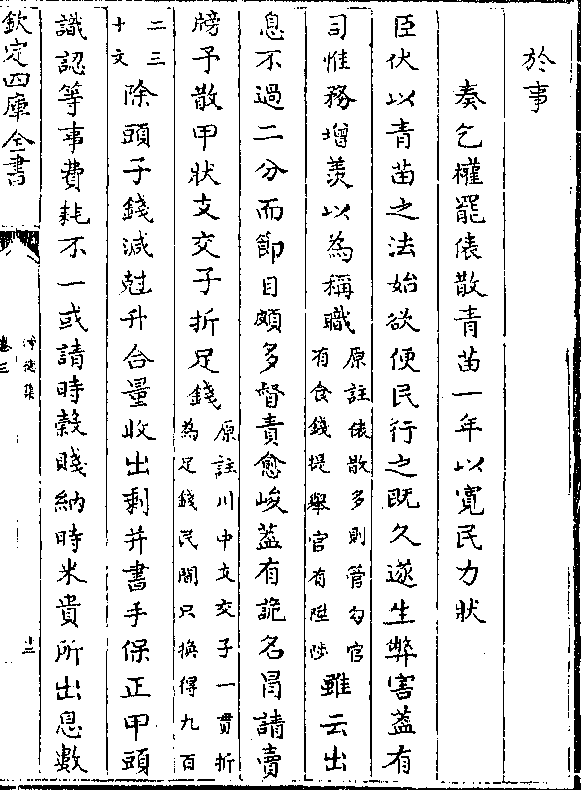 於事
奏乞權罷俵散青苗一年以寛民力狀
臣伏以青苗之法始欲便民行之既久遂生弊害葢有
司惟務增羡以為稱職原註俵散多則管勾官有食錢提舉官有陞陟雖云出
息不過二分而節目頗多督責愈峻葢有詭名冐請賣
牓子散甲狀支交子折足錢原註川中支交子一貫折為足錢民間只換得九百
二三十文除頭子錢減尅升合量收出剩并書手保正甲頭
識認等事費耗不一或請時榖賤納時米貴所出息數
欽定四庫全書
淨德集
卷三
十三